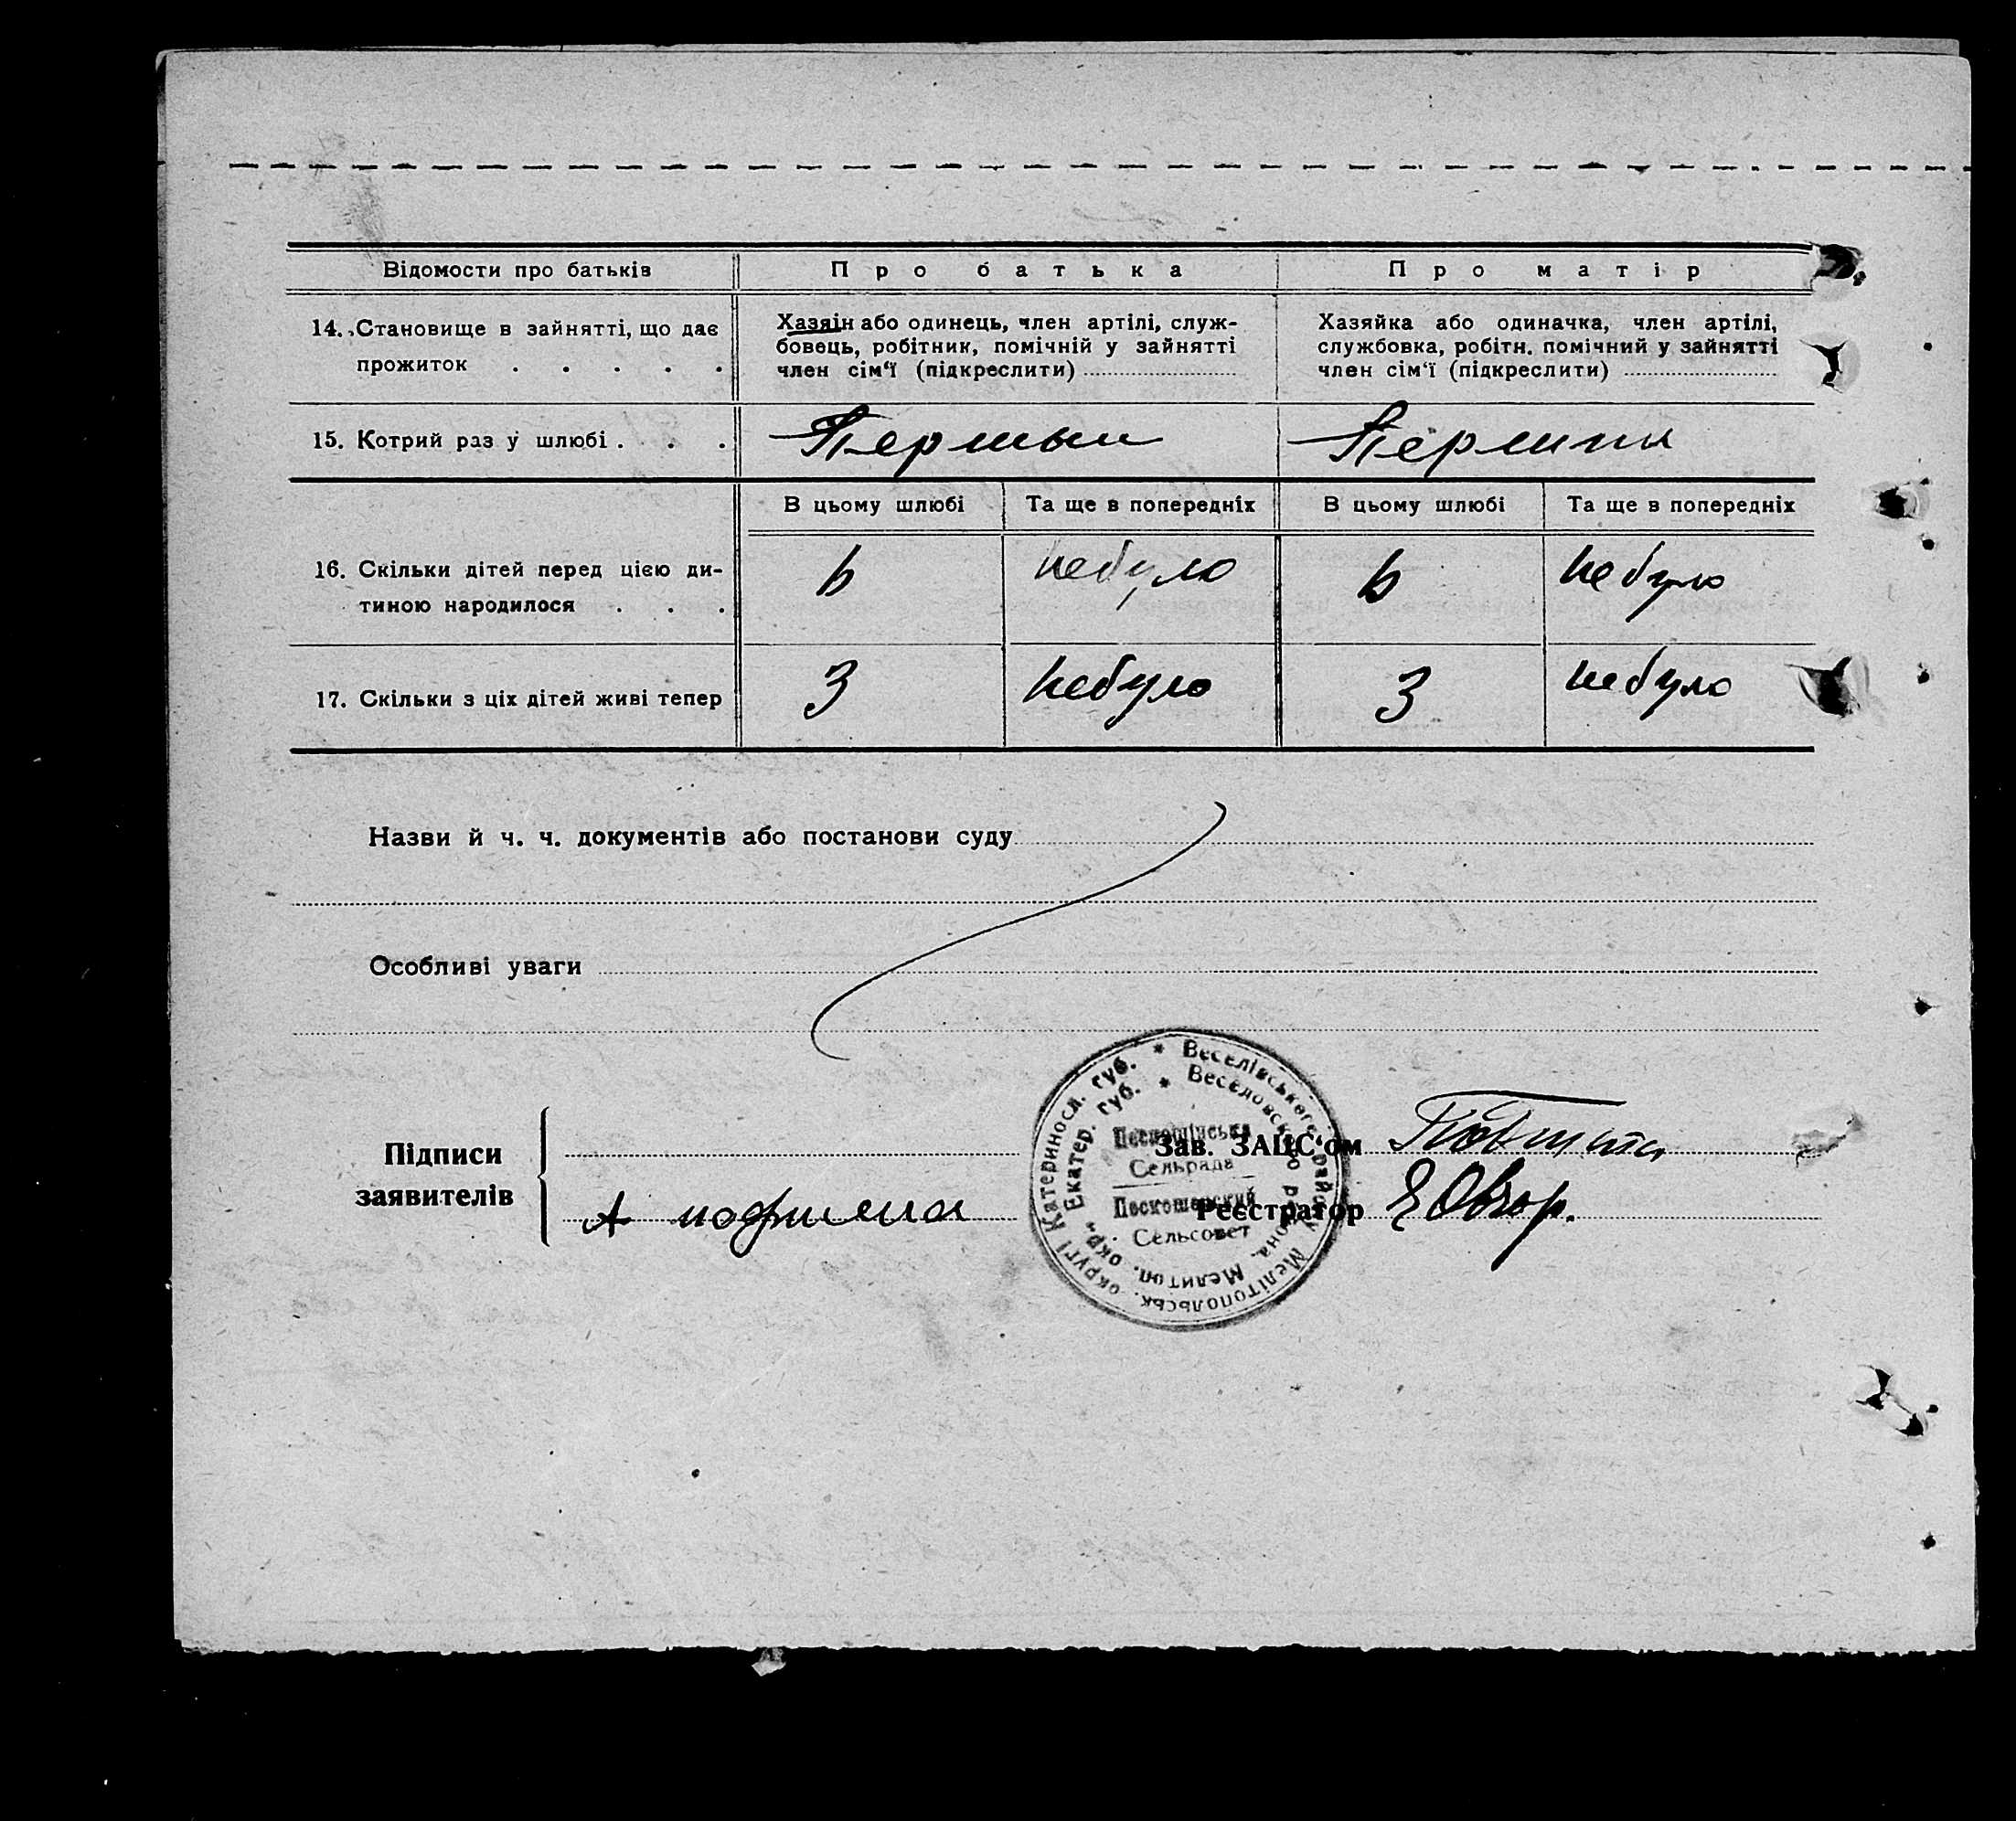 Відомости про батьків
Про батька
Про матір
14. Становище в зайнятті, що дає
прожиток . . . . .
Хазяін або одинець, член артілі, служ-
бовець, робітник, помічній у зайнятті
член сім‘ї (підкреслити)
Хазяйка або одиначка, член артілі,
службовка, робітн. помічний у зайнятті
член сім‘ї (підкреслити)
15. Котрий раз у шлюбі . . .
Першый
В цьому шлюбі
Та ще в попередніх
В цьому шлюбі
Та ще в попередніх
16. Скільки дітей перед цією ди-
тиною народилося . . .
6
небуло
6
небуло
17. Скільки з ціх дітей живі тепер
3
небуло
3
небуло
Назви й ч. ч. документів або постанови суду
Особливі уваги
Підписи
заявителів
Зав. ЗАЦС‘ом
Реєстратор
* Веселівського району Мелітопольськ. округі Катериносл. губ.
* Веселовского района, Мелитоп. окр., Екатер. губ.
Сельрада
Сельсовет